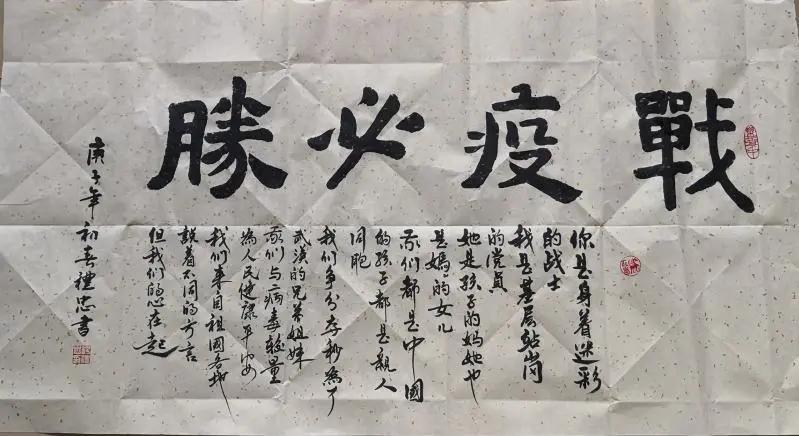 戰疫必勝
你是身着迷彩
的战士
我是基层站岗
的党員
她是孩子的妈她也
是媽的女儿
我们都是中國
的孩子都是親人
同胞
我们争分夺秒為了
武漢的兄弟姐妹
我们与病毒較量
為人民健康平安
我们来自祖國各地
説着不同的方言
但我们的心在一起
庚子年初春禮忠書